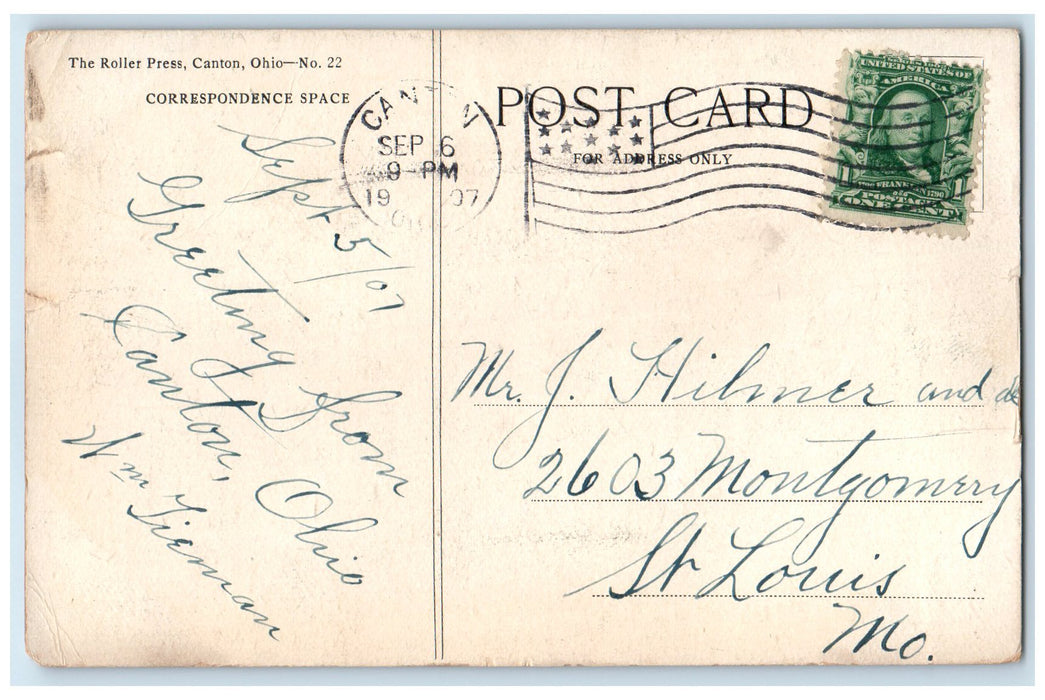 The Roller Press, Canton, Ohio—No. 22
CORRESPONDENCE SPACE
Sept 5/07
Greeting from
Canton, Ohio
Wm Tieman
CANTON
SEP 6
9 - PM
1907
POST CARD
FOR ADDRESS ONLY
UNITED STATES OF
AMERICA
1706 FRANKLIN 1790
POSTAGE
1 ONE CENT 1
Mr. J. Hilmer and
2603 Montgomery
St Louis
Mo.